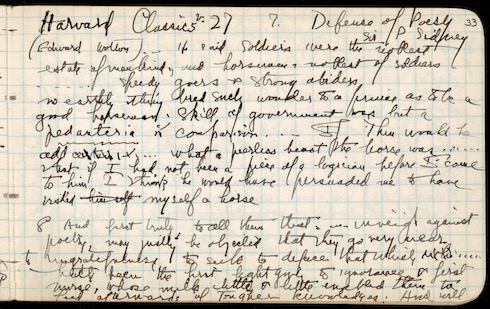 Harvard Classics 27 7. Defense of Poesy 33
Sir P Sidney
(Edward Wotton ... He said soldiers were the noblest
estate of mankind, and horsemen noblest of soldiers
..... speedy goers & strong abiders
no earthly thing bred such wonder to a prince as to be a
good horseman. Skill of government was but a
pedanteria in comparison ... Then would he
add ... what a peerless beast the horse was ......
that if I had not been a piece of a logician before I came
to him, I think he would have persuaded me to have
wished myself a horse
8 And first truly to all them that ... inveigh against
poetry, may justly be objected that they go very near
to ungratefulness, to seek to deface that which
hath been the first light giver to ignorance & first
nurse, whose milk little & little enabled them to
feed afterwards of tougher knowledges. And will